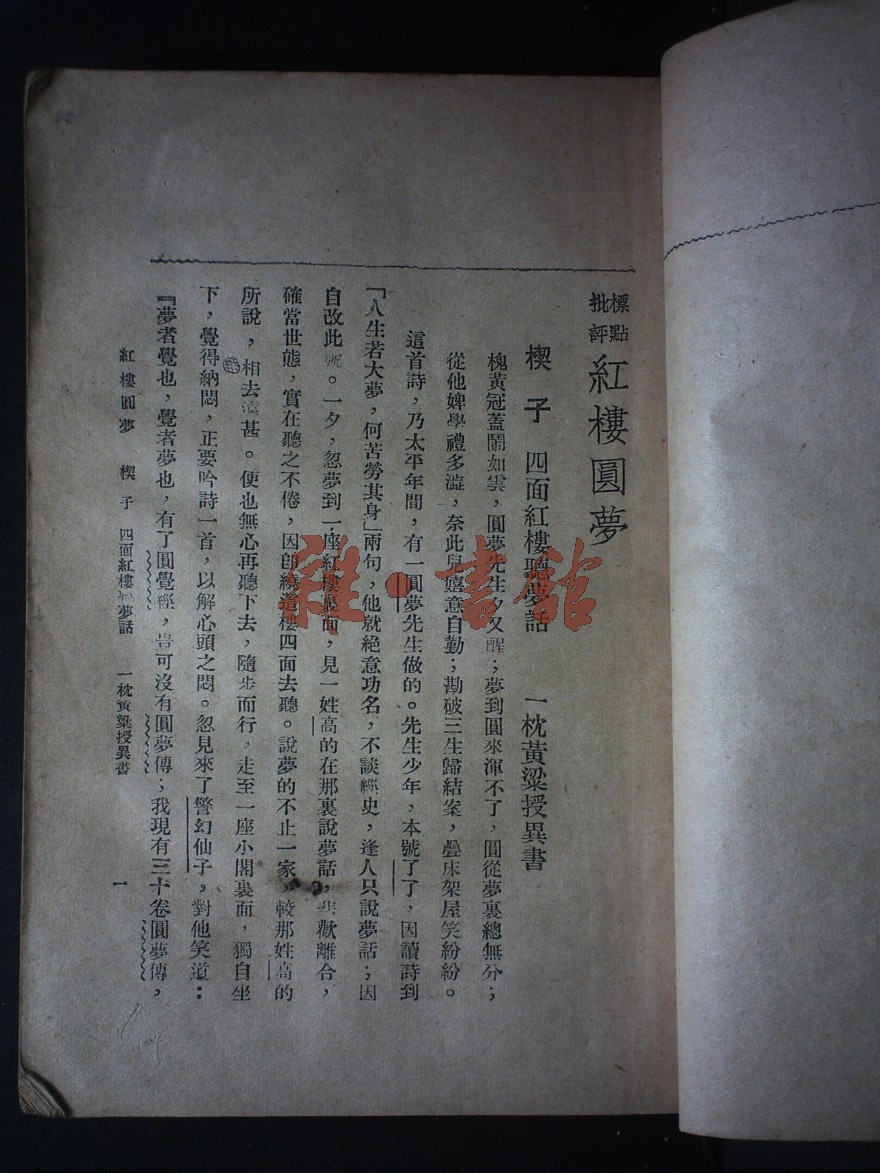 標點
批評
紅樓圓夢
楔子 四面紅樓聽夢話 一枕黃粱授異書
槐黃冠蓋鬧如雲，圓夢先生夕又醒；夢到圓來渾不了，圓從夢裏總無分；
從他婢學禮多澁，奈此兒嬉意自勤；勘破三生歸結案，疊床架屋笑紛紛。
這首詩，乃太平年間，有一圓夢先生做的。先生少年，本號了了，因讀詩到
「人生若大夢，何苦勞其身」兩句，他就絕意功名，不談經史，逢人只說夢話；因
自改此號。一夕，忽夢到一座紅樓裏面，見一姓高的在那裏說夢話，悲歡離合，
確當世態，實在聽之不倦，因即繞這樓四面去聽。說夢的不止一家，較那姓高的
所說，相去遠甚。便也無心再聽下去，隨步而行，走至一座小閣裏面，獨自坐
下，覺得納悶，正要吟詩一首，以解心頭之悶。忽見來了警幻仙子，對他笑道：
『夢者覺也，覺者夢也，有了圓覺經，豈可沒有圓夢傳；我現有三十卷圓夢傳，
紅樓圓夢 楔子 四面紅樓聽夢話 一枕黃粱授異書 一
雜·書館